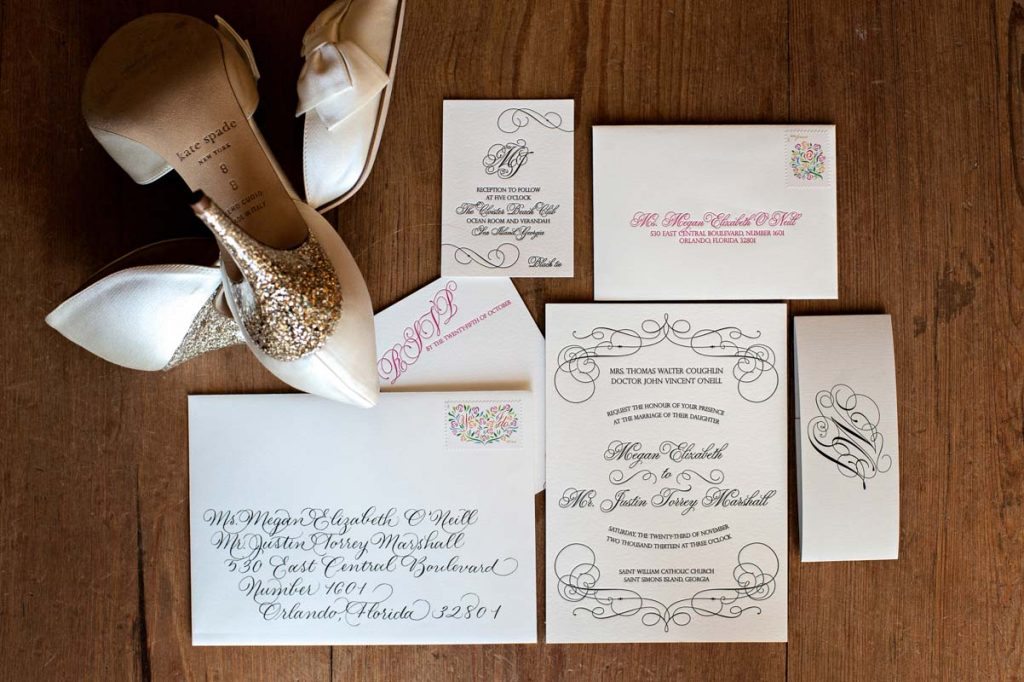 kate spade
NEW YORK
8
B
M&J
RECEPTION TO FOLLOW
AT FIVE O'CLOCK
The Cloister Beach Club
OCEAN ROOM AND VERANDAH
Sea Island, Georgia
Black tie
Ms. Megan Elizabeth O'Neill
530 EAST CENTRAL BOULEVARD, NUMBER 1601
ORLANDO, FLORIDA 32801
RSVP
BY THE TWENTY-FIFTH OF OCTOBER
Yes I do
Ms. Megan Elizabeth O'Neill
Mr. Justin Torrey Marshall
530 East Central Boulevard
Number 1601
Orlando, Florida 32801
MRS. THOMAS WALTER COUGHLIN
DOCTOR JOHN VINCENT O'NEILL
REQUEST THE HONOUR OF YOUR PRESENCE
AT THE MARRIAGE OF THEIR DAUGHTER
Megan Elizabeth
to
Mr. Justin Torrey Marshall
SATURDAY, THE TWENTY-THIRD OF NOVEMBER
TWO THOUSAND THIRTEEN AT THREE O'CLOCK
SAINT WILLIAM CATHOLIC CHURCH
SAINT SIMONS ISLAND, GEORGIA
M&J